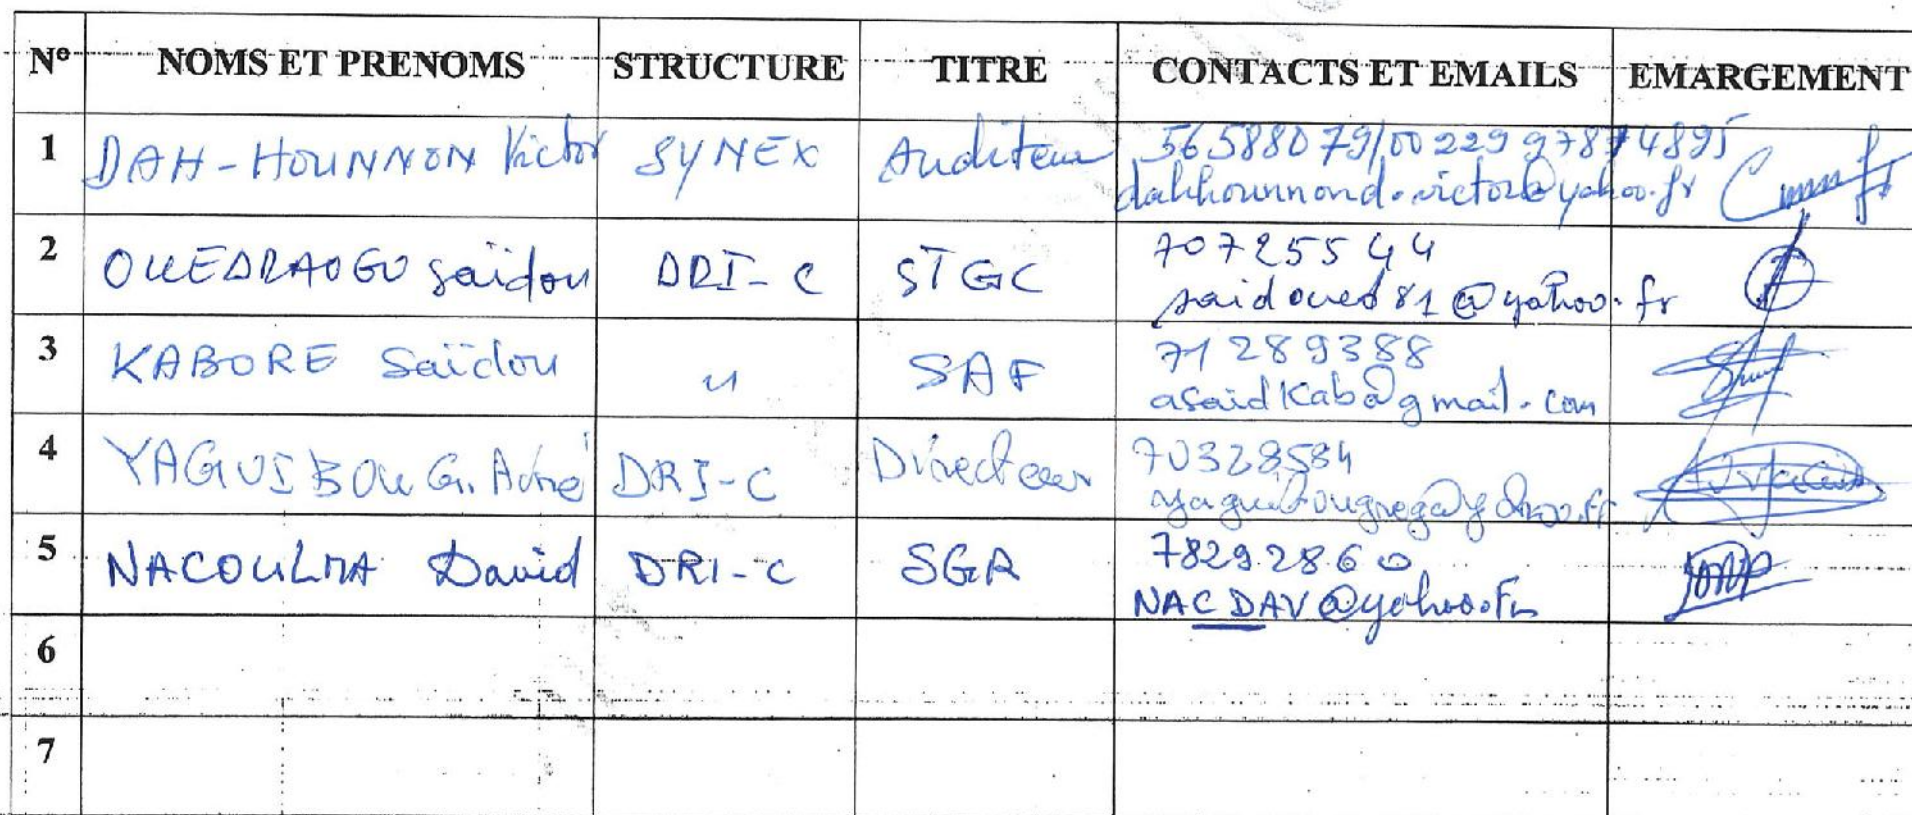 N° NOMS ET PRENOMS STRUCTURE TITRE CONTACTS ET EMAILS EMARGEMENT
1 DAH-HOUNNON Victor SYNEX Auditeur 56588079/00229 97874895
dahhounnond.victor@yahoo.fr
2 OUEDRAOGO Saïdou DRI-C STGC 70725544
saidoued81@yahoo.fr
3 KABORE Saïdou " SAF 71289388
asaidkab@gmail.com
4 YAGUIBOU G. André DRI-C Directeur 70328584
5 NACOULMA David DRI-C SGR 78292860
NACDAV@yahoo.fr
6
7